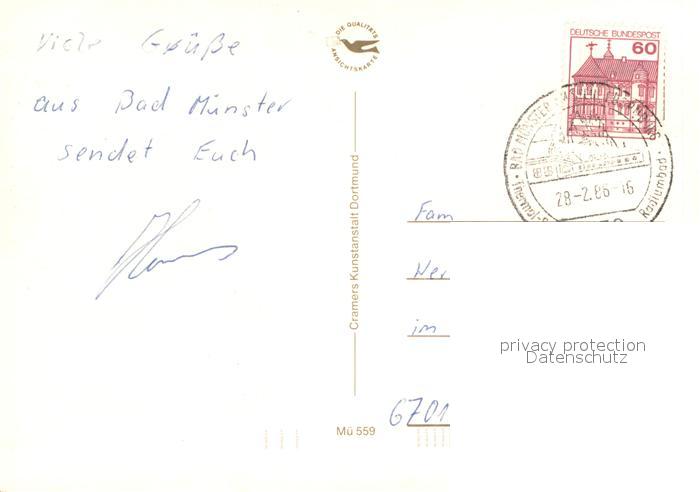 Viele Grüße
aus Bad Münster
sendet Euch
DIE QUALITÄTS
ANSICHTSKARTE
Cramers Kunstanstalt Dortmund
Mü 559
DEUTSCHE BUNDESPOST
60
BAD MÜNSTER
28-2.86-16
Radiumbad
Fam
Wer
im
6701
privacy protection
Datenschutz